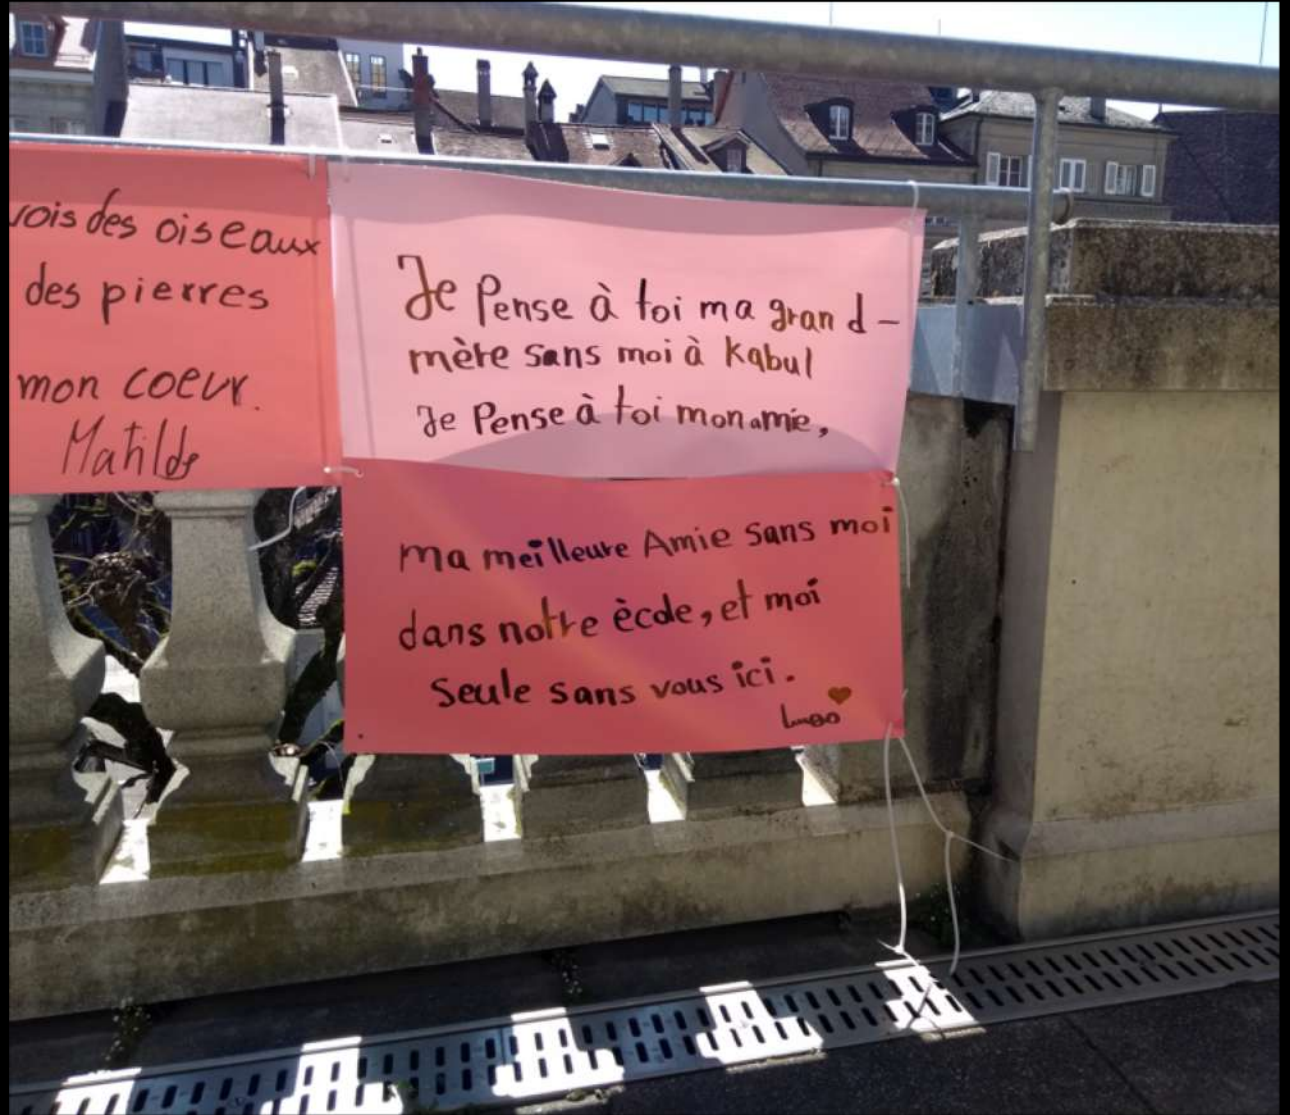 vois des oiseaux
des pierres
mon coeur.
Matilde
Je Pense à toi ma grand-
mère sans moi à Kabul
Je Pense à toi mon amie,
ma meilleure Amie sans moi
dans notre ècole, et moi
Seule sans vous ici.